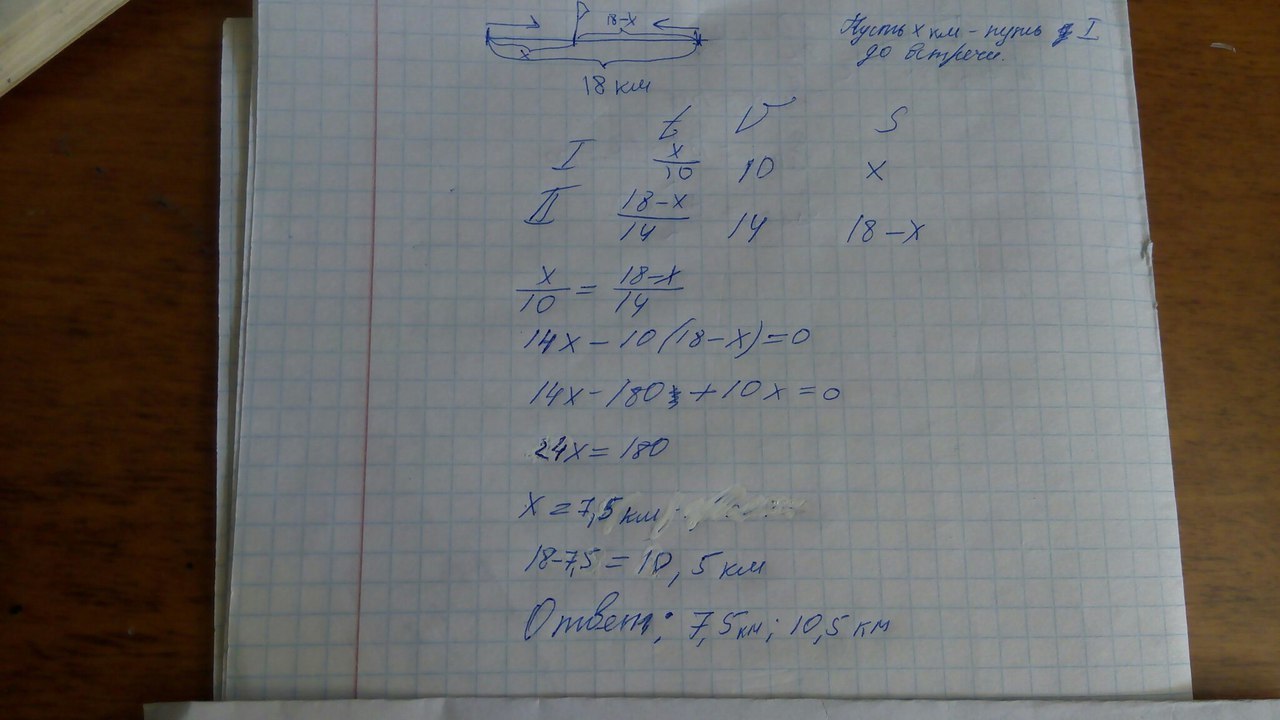 18-x
x
18 км
Пусть x км - путь I
до встречи.
t V S
I x/10 10 x
II 18-x/14 14 18-x
x/10 = 18-x/14
14x - 10(18-x)=0
14x-180+10x=0
24x=180
x=7,5км
18-7,5=10,5 км
Ответ: 7,5км; 10,5 км